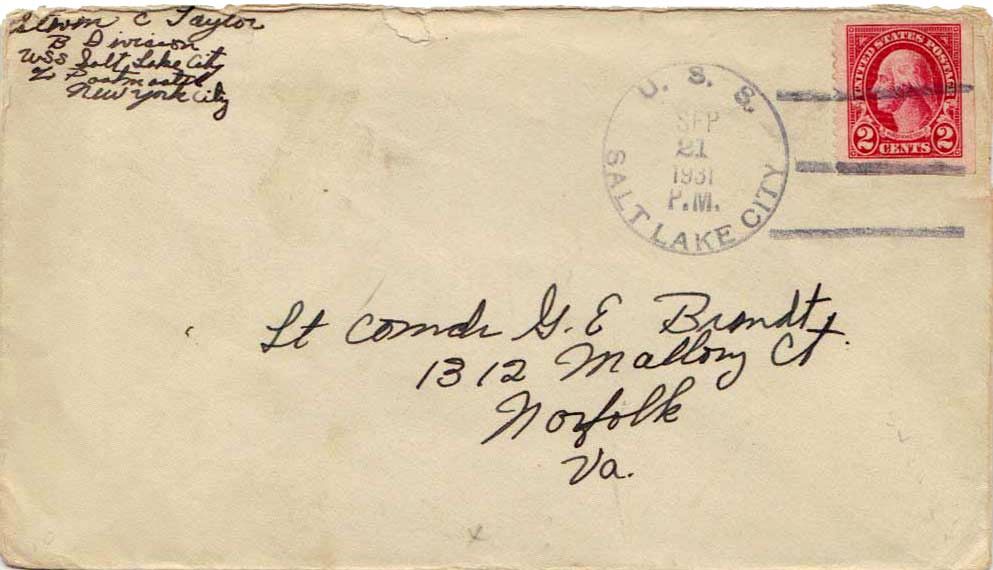 C Taylor
B Division
USS Salt Lake City
% Postmaster
New York City
U. S. S.
SEP
21
1931
P.M.
SALT LAKE CITY
UNITED STATES POSTAGE
WASHINGTON
2 CENTS 2
Lt Comdr G. E Brandt,
1312 Mallory Ct.
Norfolk
Va.